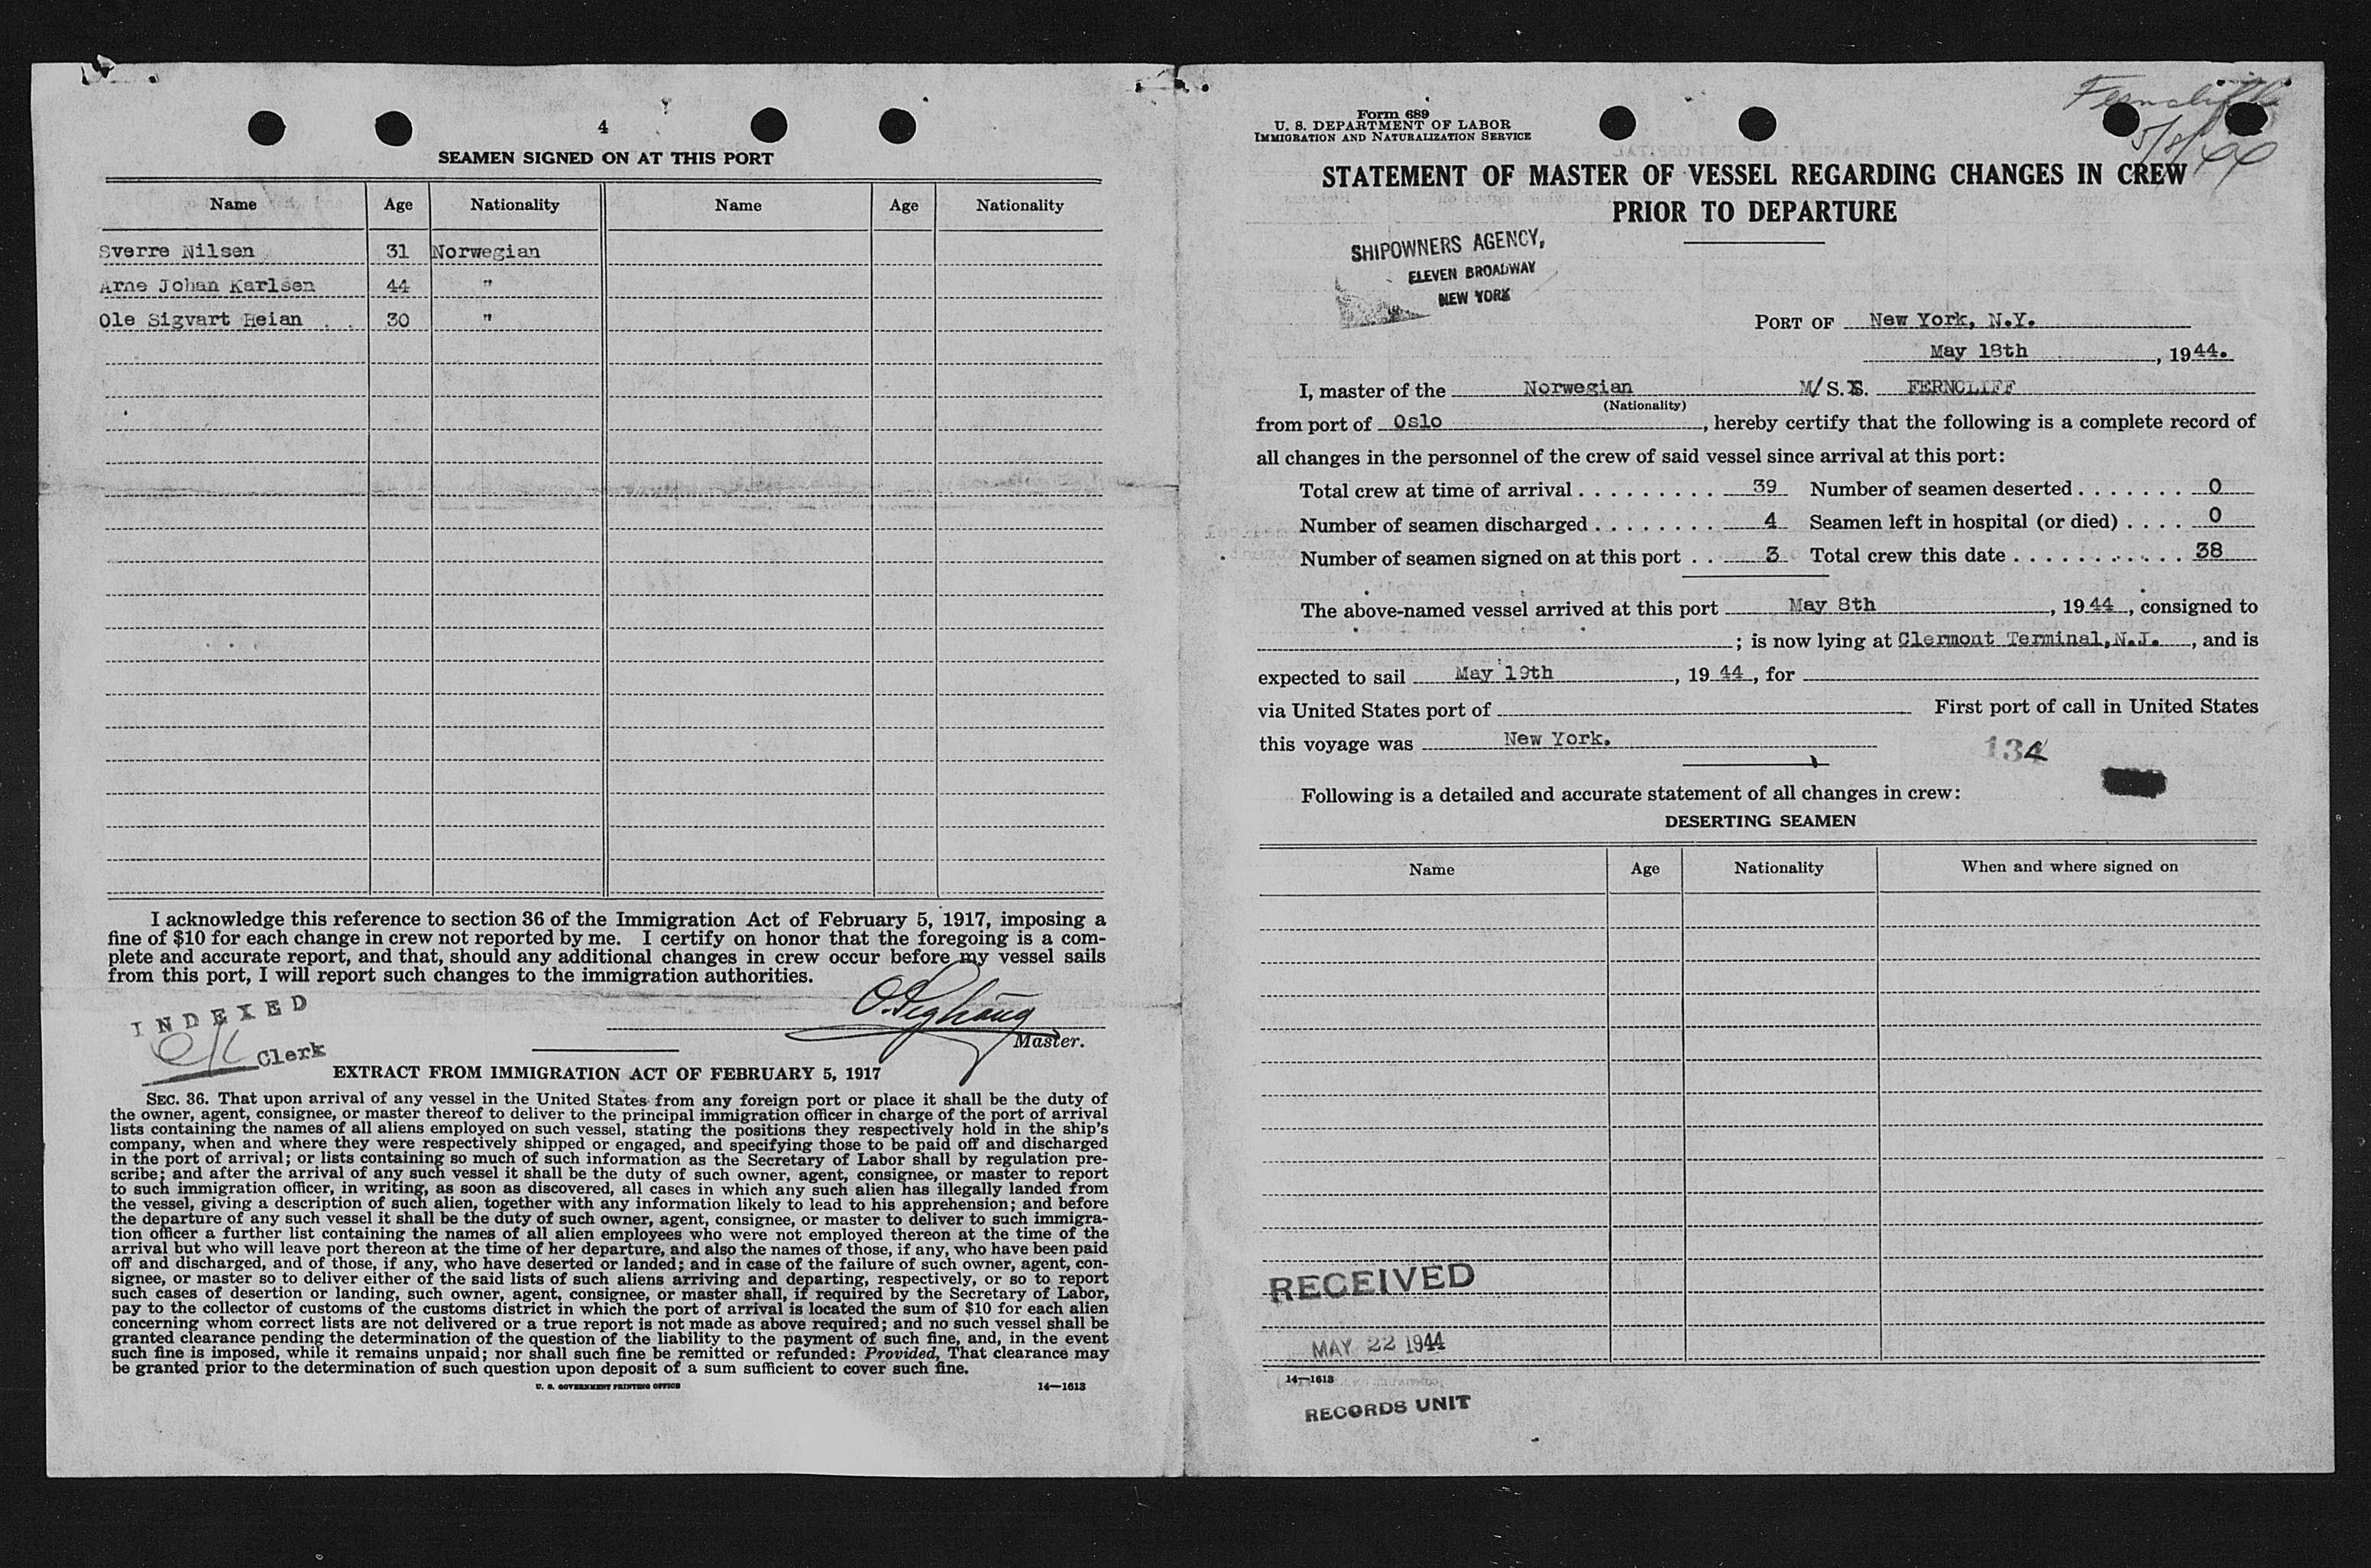 4
SEAMEN SIGNED ON AT THIS PORT
Name Age Nationality Name Age Nationality
Sverre Nilsen 31 Norwegian
Arne Johan Karlsen 44 "
Ole Sigvart Heian 30 "
I acknowledge this reference to section 36 of the Immigration Act of February 5, 1917, imposing a
fine of $10 for each change in crew not reported by me. I certify on honor that the foregoing is a com-
plete and accurate report, and that, should any additional changes in crew occur before my vessel sails
from this port, I will report such changes to the immigration authorities.
INDEXED
Clerk
Master.
EXTRACT FROM IMMIGRATION ACT OF FEBRUARY 5, 1917
SEC. 36. That upon arrival of any vessel in the United States from any foreign port or place it shall be the duty of
the owner, agent, consignee, or master thereof to deliver to the principal immigration officer in charge of the port of arrival
lists containing the names of all aliens employed on such vessel, stating the positions they respectively hold in the ship's
company, when and where they were respectively shipped or engaged, and specifying those to be paid off and discharged
in the port of arrival; or lists containing so much of such information as the Secretary of Labor shall by regulation pre-
scribe; and after the arrival of any such vessel it shall be the duty of such owner, agent, consignee, or master to report
to such immigration officer, in writing, as soon as discovered, all cases in which any such alien has illegally landed from
the vessel, giving a description of such alien, together with any information likely to lead to his apprehension; and before
the departure of any such vessel it shall be the duty of such owner, agent, consignee, or master to deliver to such immigra-
tion officer a further list containing the names of all alien employees who were not employed thereon at the time of the
arrival but who will leave port thereon at the time of her departure, and also the names of those, if any, who have been paid
off and discharged, and of those, if any, who have deserted or landed; and in case of the failure of such owner, agent, con-
signee, or master so to deliver either of the said lists of such aliens arriving and departing, respectively, or so to report
such cases of desertion or landing, such owner, agent, consignee, or master shall, if required by the Secretary of Labor,
pay to the collector of customs of the customs district in which the port of arrival is located the sum of $10 for each alien
concerning whom correct lists are not delivered or a true report is not made as above required; and no such vessel shall be
granted clearance pending the determination of the question of the liability to the payment of such fine, and, in the event
such fine is imposed, while it remains unpaid; nor shall such fine be remitted or refunded: Provided, That clearance may
be granted prior to the determination of such question upon deposit of a sum sufficient to cover such fine.
U. S. GOVERNMENT PRINTING OFFICE 14—1613
Form 689
U. S. DEPARTMENT OF LABOR
IMMIGRATION AND NATURALIZATION SERVICE
Ferncliff
5/8/44
STATEMENT OF MASTER OF VESSEL REGARDING CHANGES IN CREW
PRIOR TO DEPARTURE
SHIPOWNERS AGENCY,
ELEVEN BROADWAY
NEW YORK
PORT OF New York, N.Y.
May 18th, 1944.
I, master of the Norwegian M/S.S. FERNCLIFF
(Nationality)
from port of Oslo, hereby certify that the following is a complete record of
all changes in the personnel of the crew of said vessel since arrival at this port:
Total crew at time of arrival . . . . . . . . . 39 Number of seamen deserted . . . . . . . 0
Number of seamen discharged . . . . . . . . 4 Seamen left in hospital (or died) . . . . 0
Number of seamen signed on at this port . . 3 Total crew this date . . . . . . . . . . . 38
The above-named vessel arrived at this port May 8th, 1944, consigned to
; is now lying at Clermont Terminal,N.J., and is
expected to sail May 19th, 1944, for
via United States port of First port of call in United States
this voyage was New York.
134
Following is a detailed and accurate statement of all changes in crew:
DESERTING SEAMEN
Name Age Nationality When and where signed on
RECEIVED
MAY 22 1944
14—1613
RECORDS UNIT